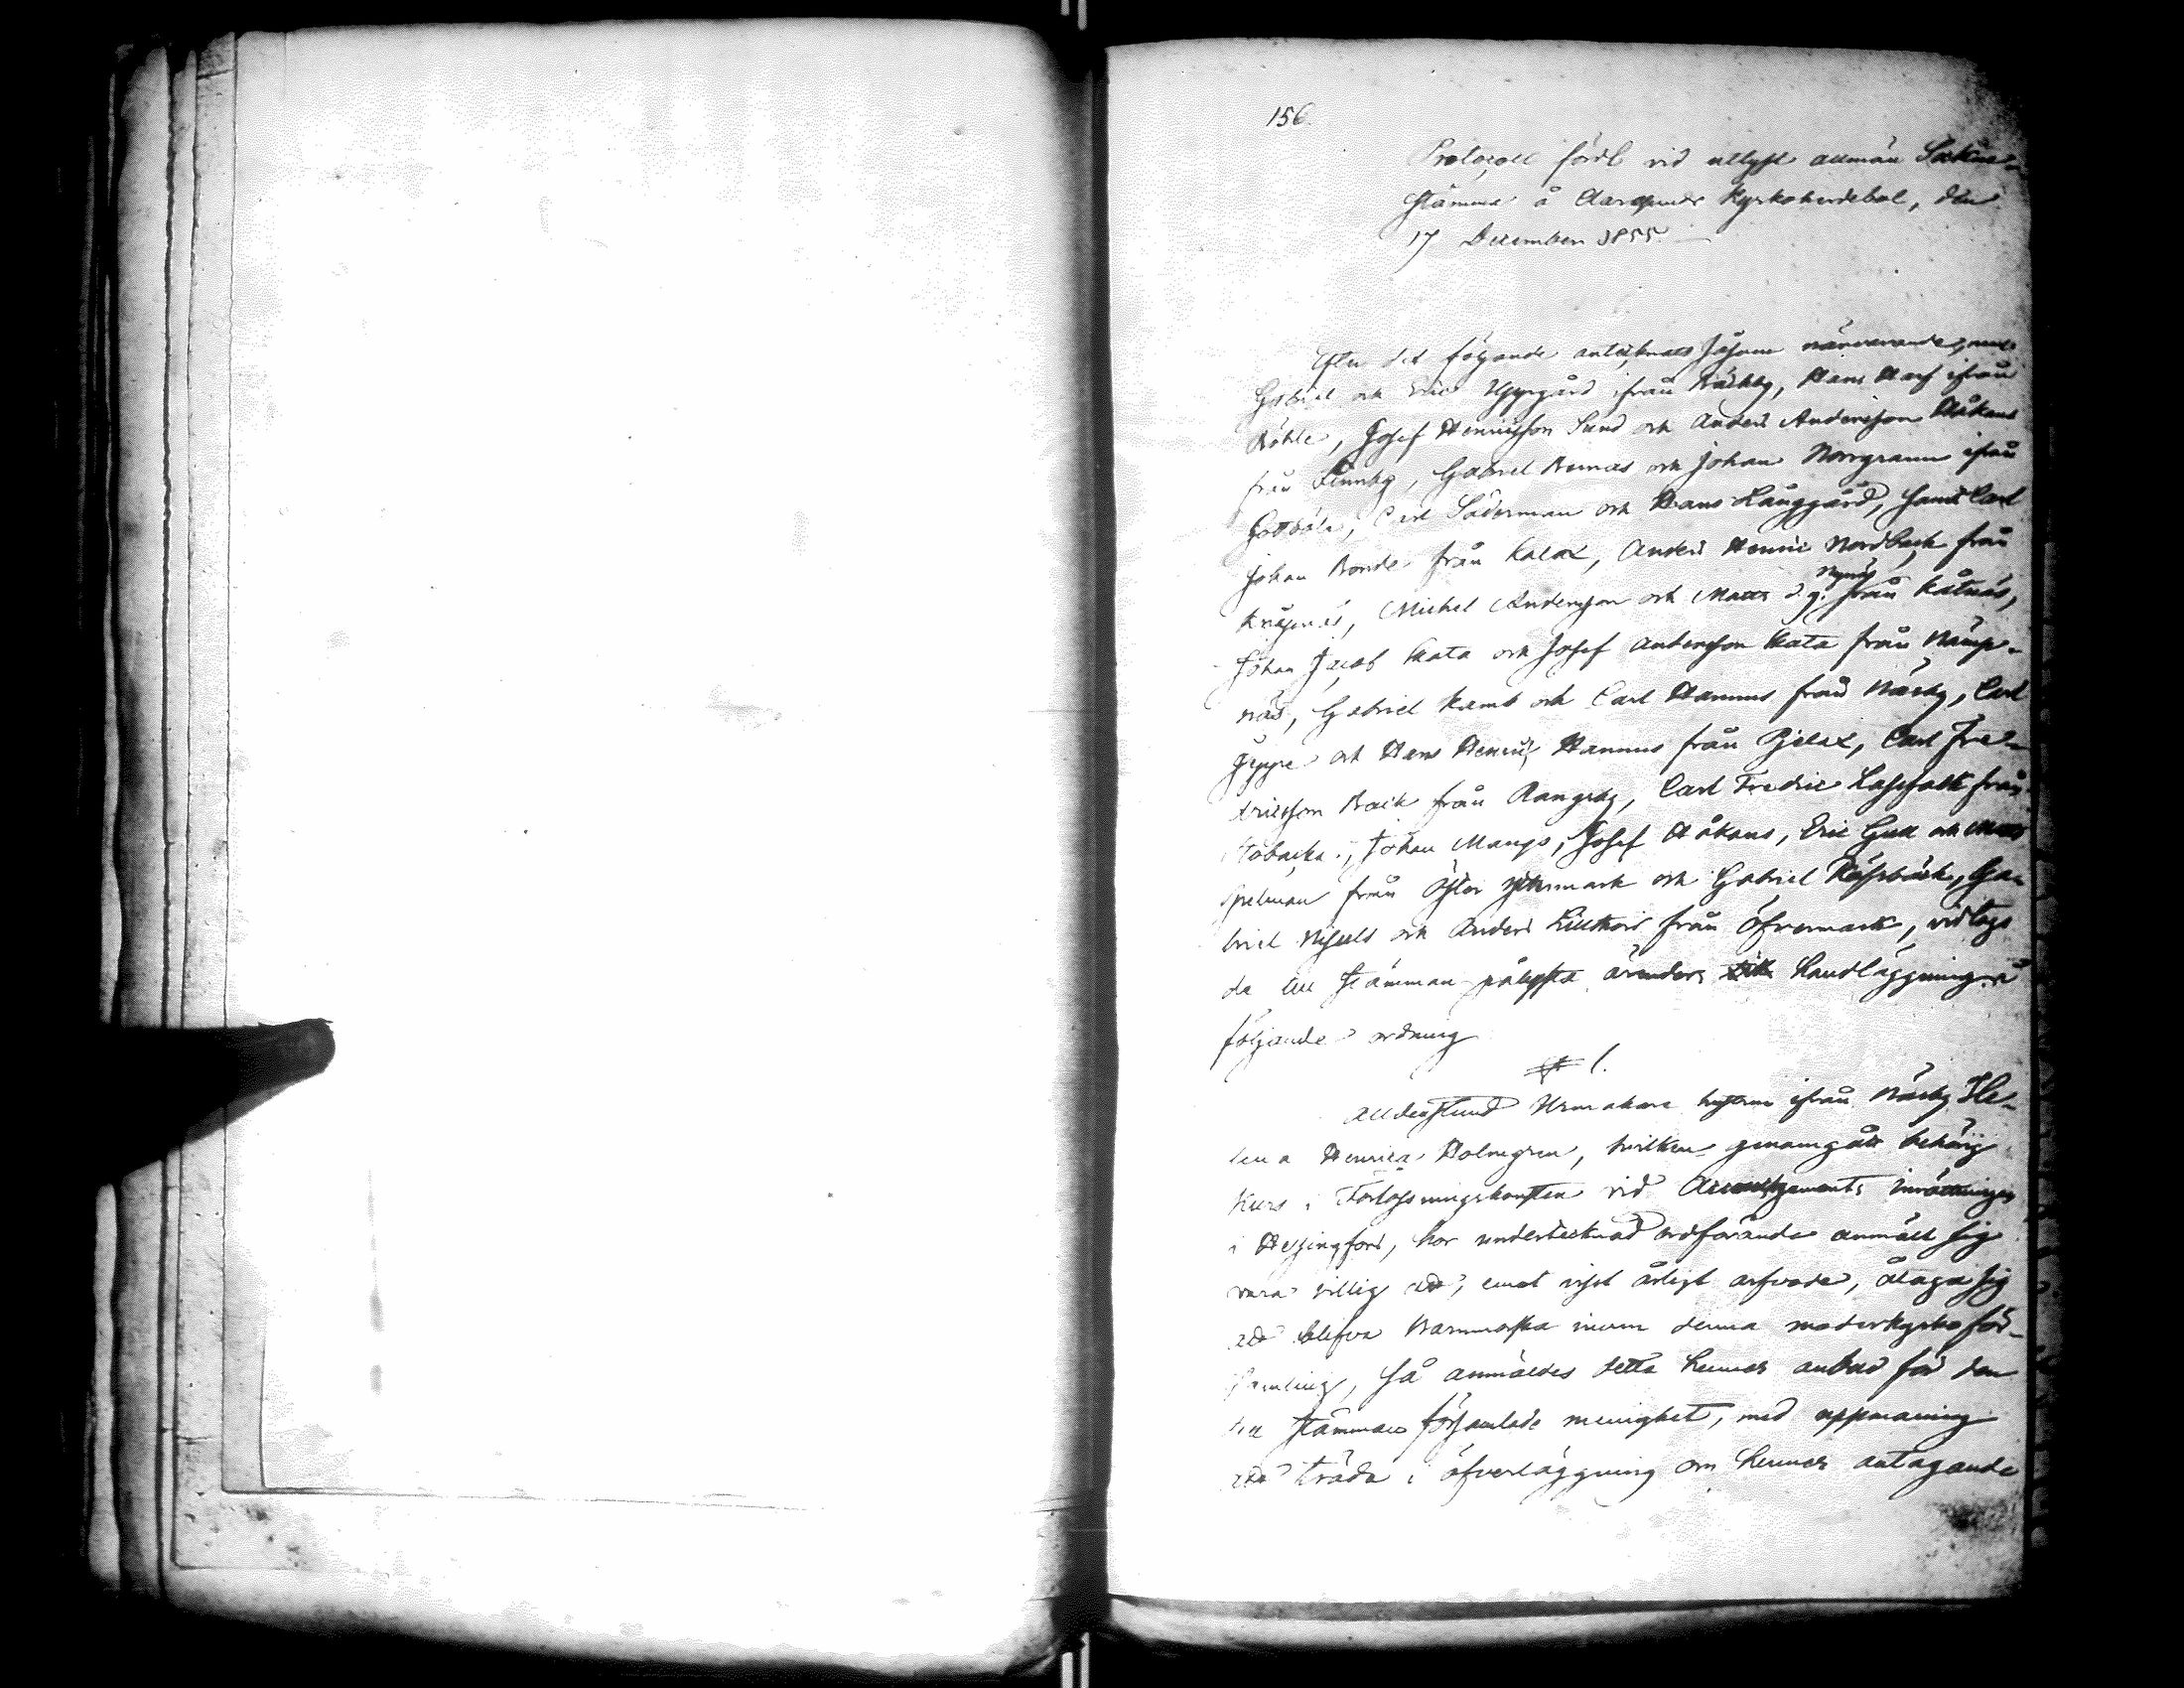 156.
Protocoll fördt vid utlyst allmän Sockne-
stämma å Kyrkoherdebol, den
17 December 1855.
Efter det följande antecknats såsom närvarande,
Gabriel och Eric Uppgård ifrån Träskby, Hans Harf ifrån
Böhle, Josef Henricsson Sund och Anders Andersson Håkans
från Finnby, Gabriel Bernas och Johan Norrgrann ifrån
Gottböle, Carl Söderman och Hans Långgård, samt Carl
Johan Bonde från Kalax, Anders Henric Nordback från
Knåpnäs, Michel Andersson och Matts d.y. Nynäs från Kåtnäs,
Johan Jacob Skata och Josef Andersson Skata från Nämp-
näs, Gabriel Kamb och Carl Hannus från Närby, Carl
Jeppe och Hans Henric Hannus från Pjelax, Carl Fre-
dricsson Back från Rangsby, Carl Fredric Lassfolk från
Stobacka, Johan Mangs, Josef Håkans, Eric Gull och Matts
Spelman från Öster Yttermark och Gabriel Röjsbäck, Ga-
briel Nissels och Anders Lillkors från Öfvermark, vidtogs
de till stämman pålysta ärenders handläggning i
följande ordning
§ 1.
Alldenstund Urmakare hustrun ifrån Närby He-
lena Henrica Holmgren, hvilken genomgått behörig
Kurs i Förlossningskonsten vid Accouchements inrättningen
i Helsingfors, hos undertecknad ordförande anmält sig
vara villig att, emot visst årligt arfvode, åtaga sig
att blifva Barnmorska inom denna moderkyrko för-
samling, så anmäldes detta hennes anbud för den
till stämman församlade menighet, med uppmaning
att träda i öfverläggning om hennes antagande